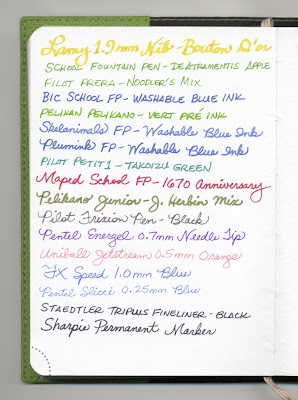 Lamy 1.9mm Nib - Bouton D'or
School Fountain Pen - DeAtramentis Apple
Pilot Prera - Noodler's Mix
Bic School FP - Washable Blue Ink
Pelikan Pelikano - Vert Pré Ink
Skelanimals FP - Washable Blue Ink
Plumink FP - Washable Blue Ink
Pilot Petit1 - Takoizu Green
Maped School FP - 1670 Anniversary
Pelikano Junior - J. Herbin Mix
Pilot Frixion Pen - Black
Pentel Energel 0.7mm Needle Tip
Uniball Jetstream 0.5mm Orange
FX Speed 1.0mm Blue
Pentel Slicci 0.25mm Blue
Staedtler Triplus Fineliner - Black
Sharpie Permanent Marker